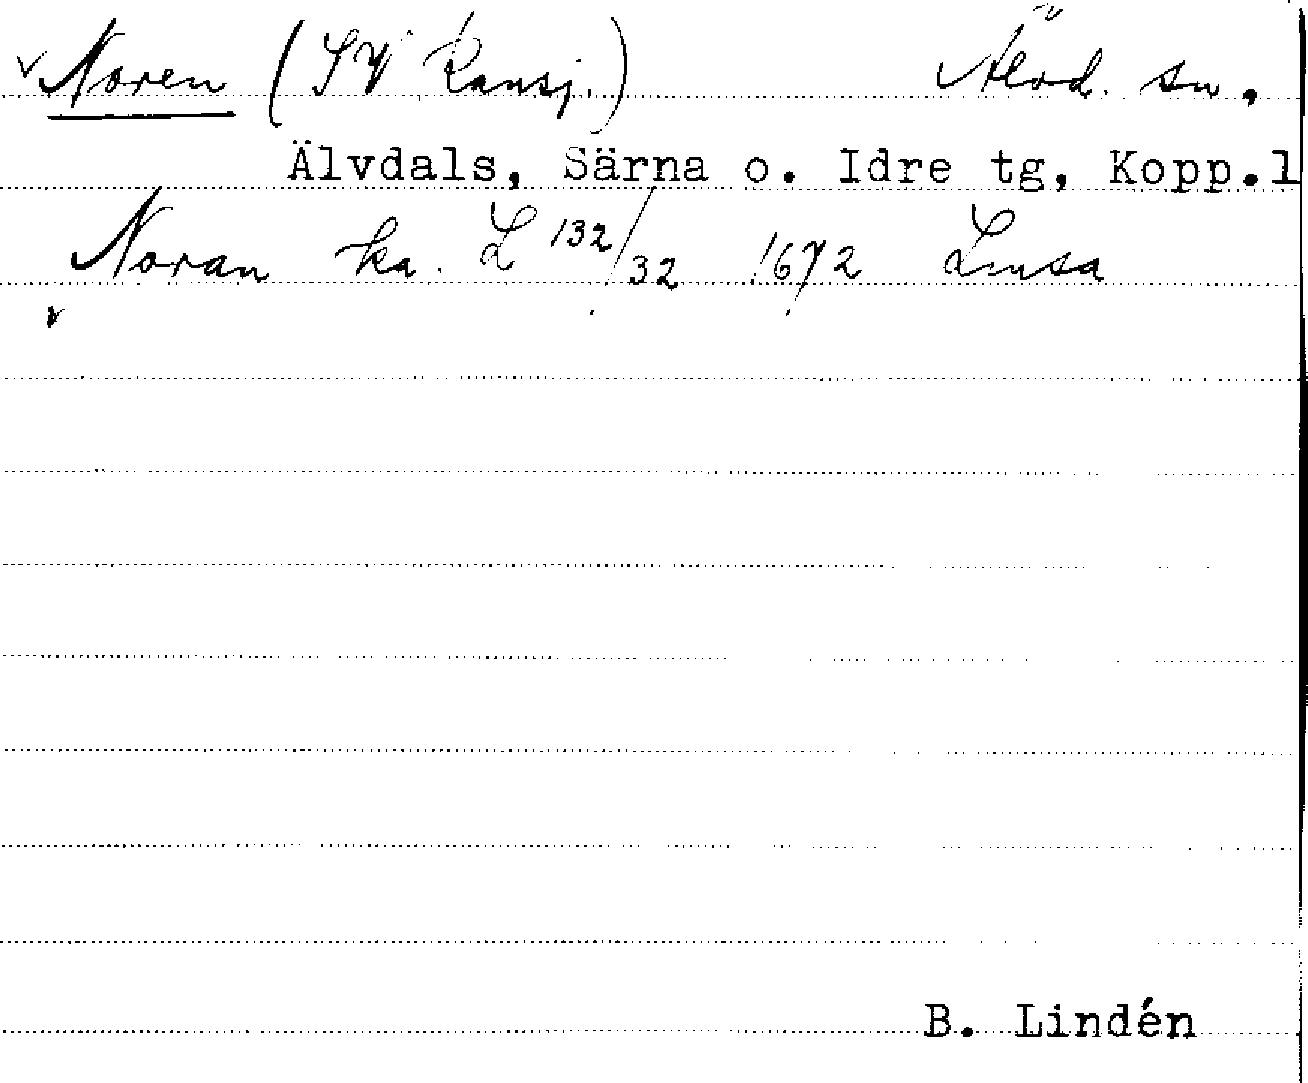 Noren (SV Ransj.) Älvd. sn.
Älvdals, Särna o. Idre tg, Kopp.l
Noran ka. L 132/32 1672 Lmsa
B. Lindén